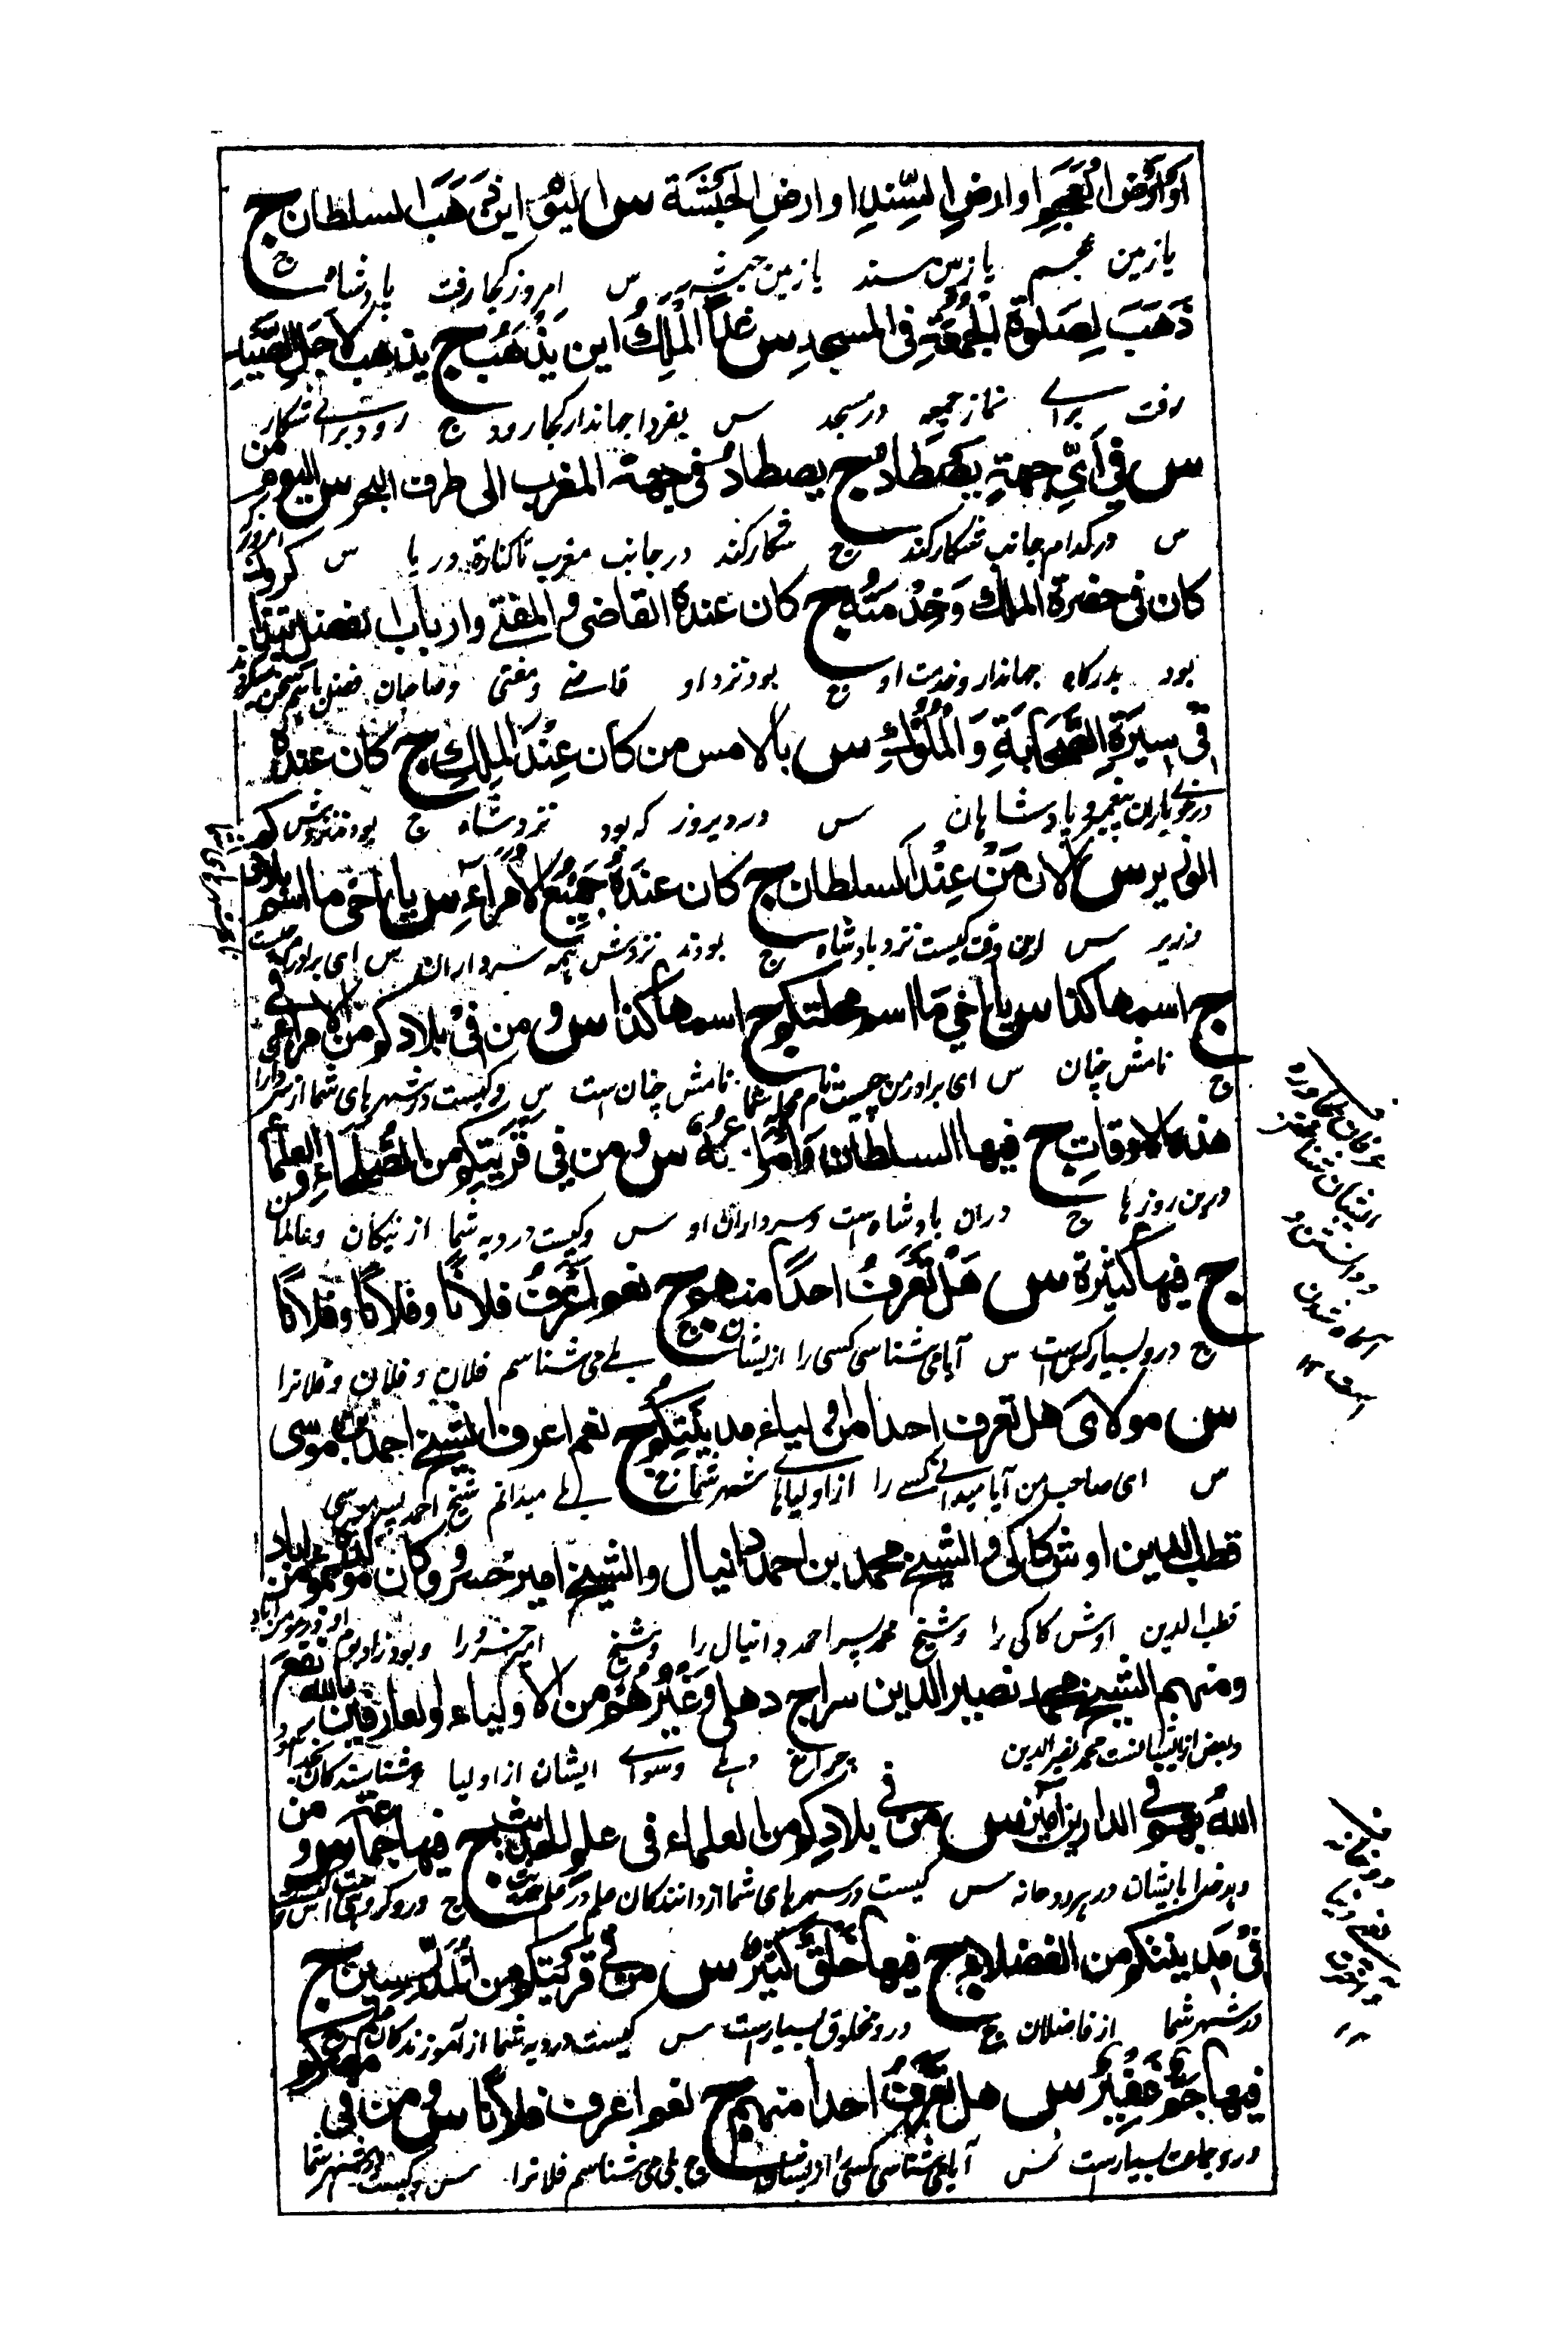 او ارض العجم او ارض السند او ارض الحبشة س اليوم اين ذهب السلطان ج
يا زمين عجم يا زمين سند يا زمين حبشه س امروز كجا رفت پادشاه ج
ذهب لصلوة الجمعة في المسجد س غدا الملك اين يذهب ج يذهب لاجل الصيد
رفت برائے نماز جمعه در مسجد س بفردا جهاندار كجا رود ج رود برائے شكار
س في اي جهة يصطاد ج يصطاد في جهة المغرب الى طرف البحر س اليوم من
س در كدام جانب شكار كند ج شكار كند در جانب مغرب تا كناره دريا س امروز كه
كان في حضرة الملك وخدمته ج كان عنده القاضي والمفتي وارباب الفضل
بود بدرگاه جهاندار و خدمت او ج بود نزد او قاضے و مفتى و صاحبان فضل
في سيرة الصحابة والملوك س بالامس من كان عند الملك ج كان عنده
در خوے ياران پيغمبر و پادشاهان س در ديروز كه بود نزد شاه ج بود نزدش
الوزير س الان من عند السلطان ج كان عنده جميع الامراء س يا اخي ما اسم بلادكم
وزير س اين وقت كيست نزد بادشاه ج بودند نزدش همه سرداران س اى برادر من چيست
ج اسمها كذا س يا اخي ما اسم محلتكم ج اسمها كذا س ومن في بلادكم من الامراء في
ج نامش چنان س اى برادر من چيست نام محله شما نامش چنان است س و كيست در شهرهاى شما از سردارا
هذه الاوقات ج فيها السلطان وامراءه س ومن في قريتكم من الصلحاء والعلماء
درين روزها ج دران بادشاه است و سرداران او س و كيست در ديه شما از نيكان و عالما
ج فيها كثيرة س هل تعرف احدا منهم ج نعم اعرف فلانا وفلانا وفلانا
ج درو بسيار كس است س آيا مى شناسى كسى را ازيشان ج بلے مى شناسم فلان و فلان و فلانرا
س مولاي هل تعرف احدا من اولياء مدينتكم ج نعم اعرف الشيخ احمد بن موسى
س اى صاحب من آيا ميدانے كسے را از اولياهاے شهر شما ج بلے ميدانم شيخ احمد پسر موسى
قطب الدين اوش كاكي والشيخ محمد بن احمد دانيال والشيخ امير خسرو وكان
قطب الدين اوش كاكى را و شيخ محمد پسر احمد دانيال را و شيخ امير خسرو را و بود زاد بوم او
ومنهم الشيخ محمد نصير الدين سراج دهلي وغيرهم من الاولياء والعارفين نفع
و بعض ازيشان ست محمد نصير الدين چراغ دهلے و سواے ايشان از اوليا و شناسندگان
الله بهم في الدارين آمين س من في بلادكم من العلماء في علم الحديث ج فيها جماعة س ومن
دهد خدا بايشان در هر دو خانه س كيست در شهرهاى شما از دانندگان علم در علم حديث ج درو گروهى است
في مدينتكم من الفضلاء ج فيها خلق كثير س من في قريتكم من المدرسين ج
در شهر شما از فاضلان ج درو مخلوق بسيار است س كيست در ديه شما از آموزندگان
فيها جم غفير س هل تعرف احدا منهم ج نعم اعرف فلانا س ومن في
درو جماعت بسيار است س آيا مى شناسى كسى را ازيشان ج بلى مى شناسم فلانرا س و كيست در شهر شما